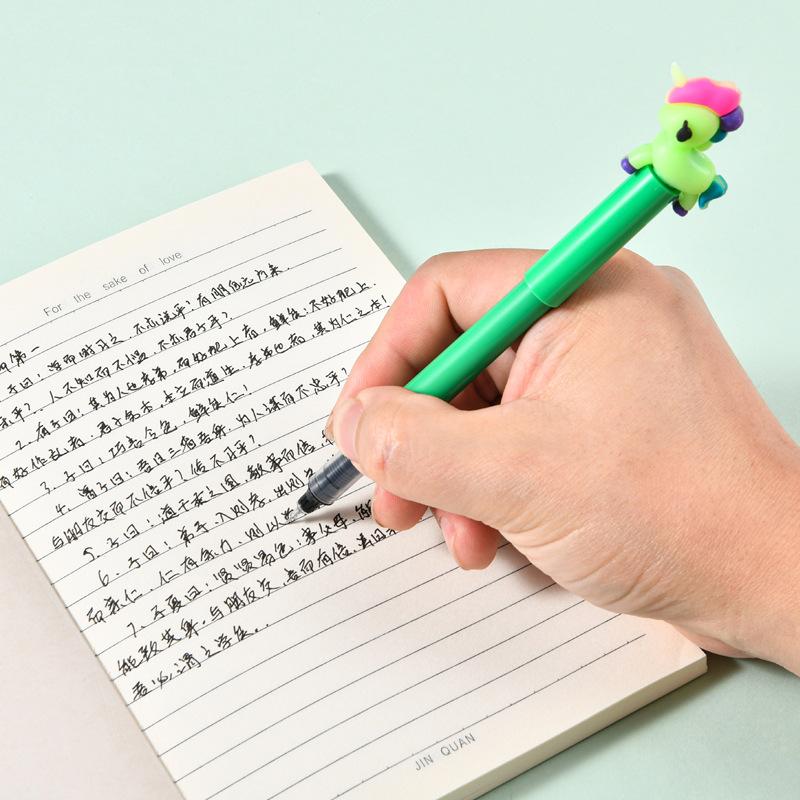 For the sake of love
第一
子曰:学而时习之,不亦说乎?有朋自远方来.
乐乎?.人不知而不愠,不亦君子乎?
2.有子曰:其为人也孝弟,而好犯上者,鲜矣;不好犯上.
有好作乱者.君子务本,本立而道生.孝弟也者,其为仁之本!
3.子曰:巧言令色,鲜矣仁!
4.曾子曰:吾日三省吾身,为人谋而不忠乎?
与朋友交而不信乎?传不习乎?
5.子曰:道千乘之国,敬事而信,
6.子曰:弟子,入则孝,出则
而亲仁.仁有余力,则以
7.子夏曰:贤贤易色;事父母,能
能致其身.与朋友交,言而有信.虽曰
吾必谓之学矣..
JIN QUAN